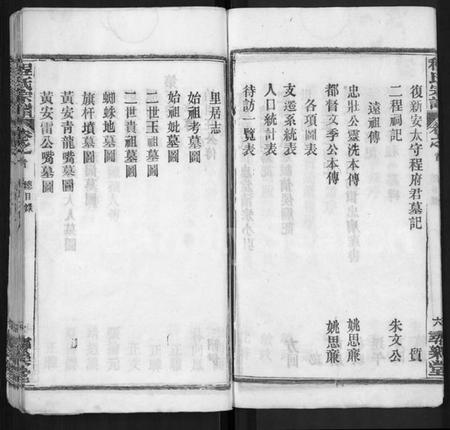 程氏宗譜
復新安太守程府君墓記
二程祠記 朱文公
遠祖傳
忠壯公靈洗本傳 姚思廉
都督文季公本傳 姚思廉
各項圖表
支遷系統表
人口統計表
待訪一覽表
六
程氏宗譜
總目錄
里居志
始祖考墓圖
始祖妣墓圖
二世玉祖墓圖
二世貴祖墓圖
蜘蛛地墓圖
旗杆墳墓圖
黃安青龍嘴墓圖
黃安雷公嘴墓圖